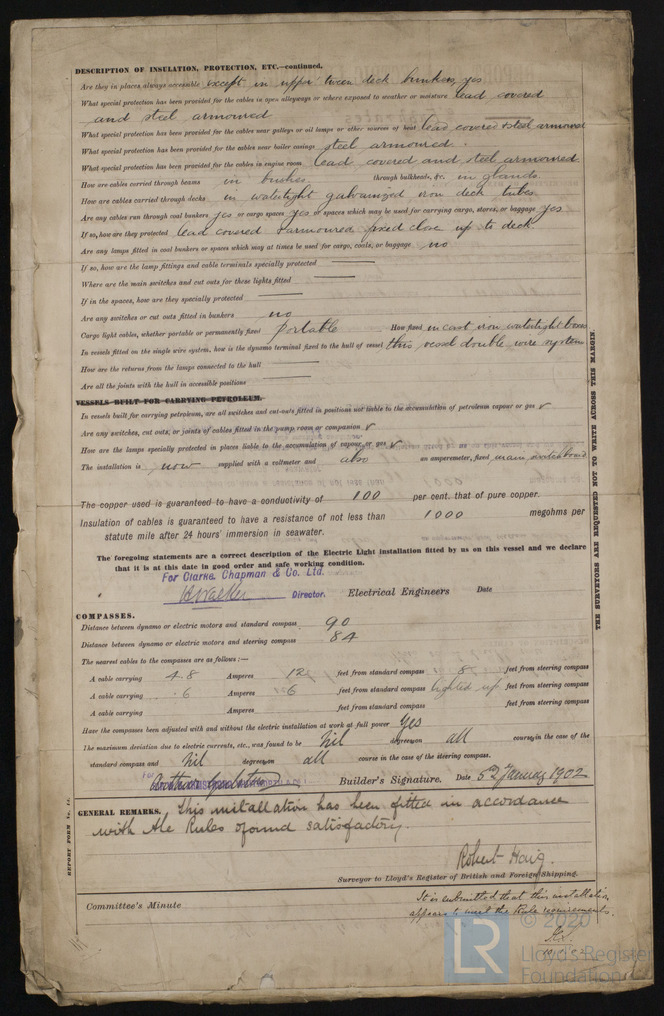 DESCRIPTION OF INSULATION, PROTECTION, ETC.—continued.
Are they in places always accessible except in upper tween deck bunkers, yes
What special protection has been provided for the cables in open alleyways or where exposed to weather or moisture lead covered
and steel armoured
What special protection has been provided for the cables near galleys or oil lamps or other sources of heat lead covered & steel armoured
What special protection has been provided for the cables near boiler casings steel armoured.
What special protection has been provided for the cables in engine room lead covered and steel armoured
How are cables carried through beams in bushes through bulkheads, &c. in glands.
How are cables carried through decks in watertight galvanized iron deck tubes
Are any cables run through coal bunkers yes or cargo spaces yes or spaces which may be used for carrying cargo, stores, or baggage yes
If so, how are they protected lead covered & armoured fixed close up to deck
Are any lamps fitted in coal bunkers or spaces which may at times be used for cargo, coals, or baggage no
If so, how are the lamp fittings and cable terminals specially protected
Where are the main switches and cut outs for these lights fitted
If in the spaces, how are they specially protected
Are any switches or cut outs fitted in bunkers no
Cargo light cables, whether portable or permanently fixed portable How fixed in cast iron watertight boxes
In vessels fitted on the single wire system, how is the dynamo terminal fixed to the hull of vessel this vessel double wire system
How are the returns from the lamps connected to the hull
Are all the joints with the hull in accessible positions
VESSELS BUILT FOR CARRYING PETROLEUM.
In vessels built for carrying petroleum, are all switches and cut-outs fitted in positions not liable to the accumulation of petroleum vapour or gas
Are any switches, cut outs, or joints of cables fitted in the pump room or companion
How are the lamps specially protected in places liable to the accumulation of vapour or gas
The installation is now supplied with a voltmeter and also an amperemeter, fixed main switchboard
The copper used is guaranteed to have a conductivity of 100 per cent. that of pure copper.
Insulation of cables is guaranteed to have a resistance of not less than 1000 megohms per
statute mile after 24 hours' immersion in seawater.
The foregoing statements are a correct description of the Electric Light installation fitted by us on this vessel and we declare
that it is at this date in good order and safe working condition.
For Clarke, Chapman & Co. Ltd.
Walker Director. Electrical Engineers Date
COMPASSES.
Distance between dynamo or electric motors and standard compass 90
Distance between dynamo or electric motors and steering compass 84
The nearest cables to the compasses are as follows:—
A cable carrying 4.8 Amperes 12 feet from standard compass 8 feet from steering compass
A cable carrying .6 Amperes 6 feet from standard compass lighted up feet from steering compass
A cable carrying Amperes feet from standard compass feet from steering compass
Have the compasses been adjusted with and without the electric installation at work at full power yes
The maximum deviation due to electric currents, etc., was found to be nil degrees on all course in the case of the
standard compass and nil degrees on all course in the case of the steering compass.
For Builder's Signature. Date 5th January 1902
GENERAL REMARKS. This installation has been fitted in accordance
with the Rules & found satisfactory.
Robert Haig.
Surveyor to Lloyd's Register of British and Foreign Shipping.
Committee's Minute
It is submitted that this installation
appears to meet the Rule requirements.
THE SURVEYORS ARE REQUESTED NOT TO WRITE ACROSS THIS MARGIN.
REPORT FORM No.
LR
© 2020
Lloyd's Register
Foundation